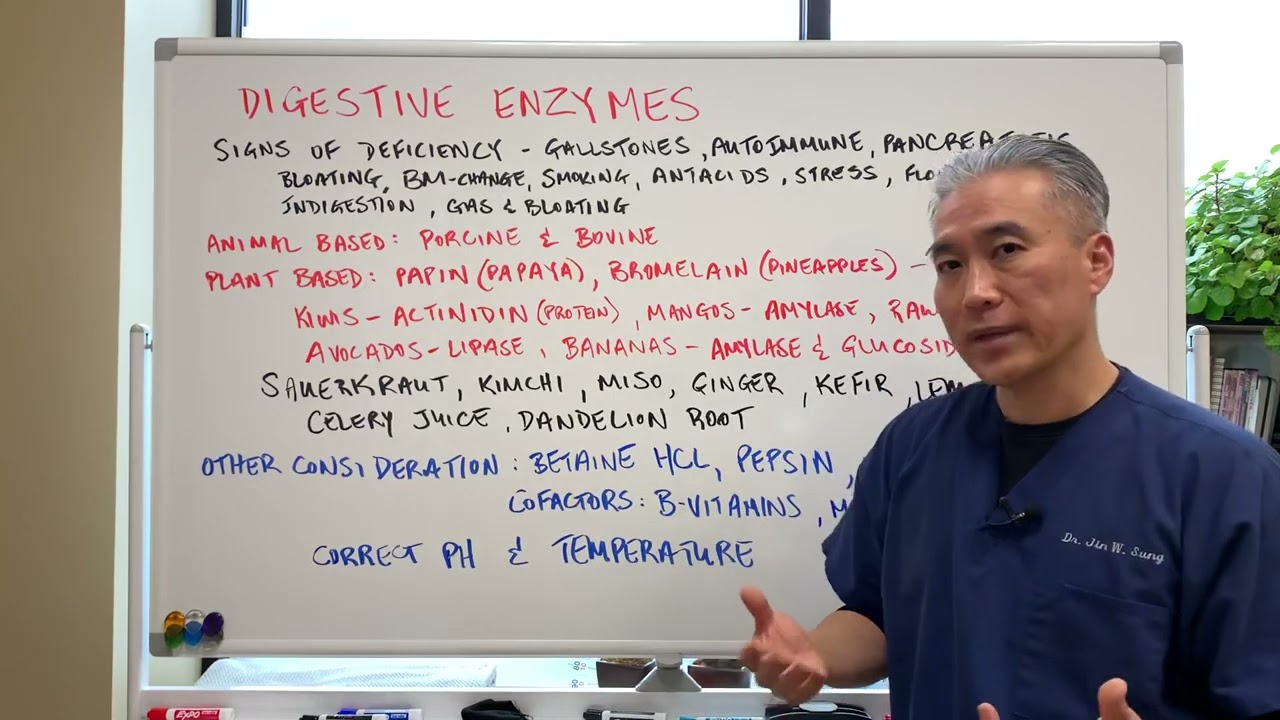 DIGESTIVE ENZYMES
SIGNS OF DEFICIENCY - GALLSTONES, AUTOIMMUNE,
BLOATING, BM-CHANGE, SMOKING, ANTACIDS, STRESS,
INDIGESTION, GAS & BLOATING
ANIMAL BASED: PORCINE & BOVINE
PLANT BASED: PAPIN (PAPAYA), BROMELAIN (PINEAPPLES) -
KIWIS - ACTINIDIN (PROTEIN), MANGOS - AMYLASE, RAW
AVOCADOS - LIPASE, BANANAS - AMYLASE &
SAUERKRAUT, KIMCHI, MISO, GINGER, KEFIR,
CELERY JUICE, DANDELION ROOT
OTHER CONSIDERATION: BETAINE HCL, PEPSIN,
COFACTORS: B-VITAMINS,
CORRECT PH & TEMPERATURE
Dr. Jin W. Sung
EXPO